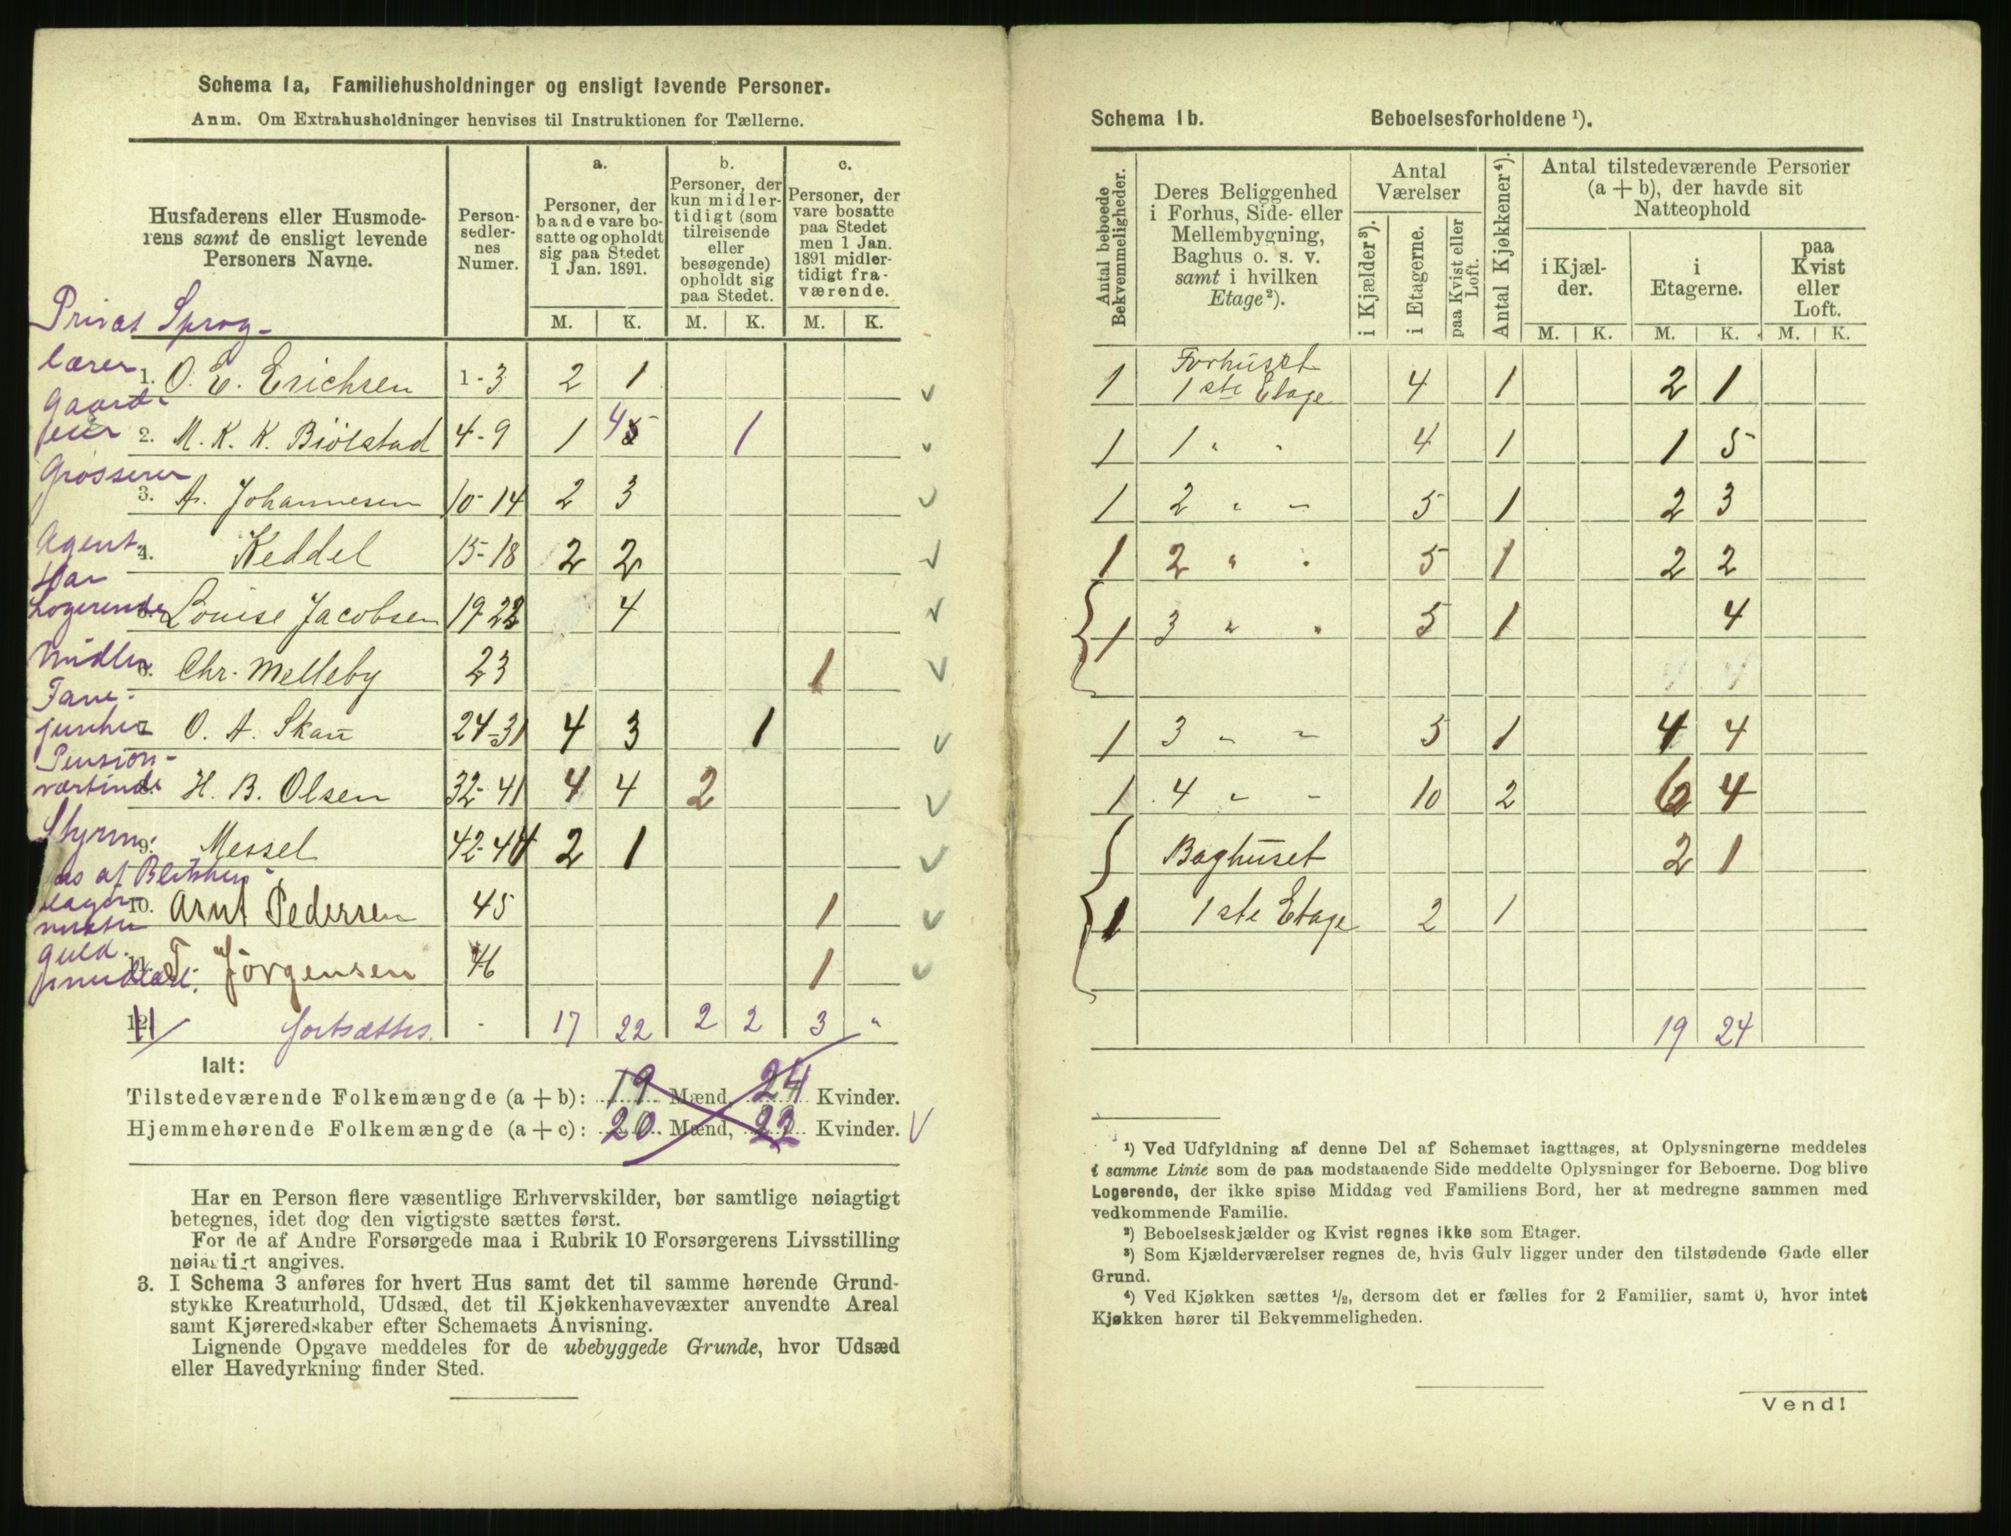 Schema 1a, Familiehusholdninger og ensligt levende Personer.
Anm. Om Extrahusholdninger henvises til Instruktionen for Tællerne.
Husfaderens eller Husmoderens samt de ensligt levende Personers Navne.
Personsedlernes Numer.
a.
Personer, der baade vare bosatte og opholdt sig paa Stedet 1 Jan. 1891.
b.
Personer, der kun midlertidigt (som tilreisende eller besøgende) opholdt sig paa Stedet.
c.
Personer, der vare bosatte paa Stedet men 1 Jan. 1891 midlertidigt fraværende.
M. K. M. K. M. K.
Privat Sprog-
lærer
1. O. E. Erichsen 1-3 2 1
Gaard-
2. M. K. K. Biölstad 4-9 1 4 1
Grosserer
3. A. Johannesen 10-14 2 3
Agent
4. Keddel 15-18 2 2
Har
Logerende
5. Louise Jacobsen 19-22 4
6. Chr. Melleby 23 1
7. O. A. Skau 24-31 4 3 1
Pension-
værtinde
8. H. B. Olsen 32-41 4 4 2
Styrm.
9. Messel 42-44 2 1
10. Arnt Pedersen 45 1
Guld-
11. T. Jörgensen 46 1
11/ fortsættes. - 17 22 2 2 3 "
Ialt:
Tilstedeværende Folkemængde (a + b): 19 Mænd, 24 Kvinder.
Hjemmehørende Folkemængde (a + c): 20 Mænd, 22 Kvinder.
Har en Person flere væsentlige Erhvervskilder, bør samtlige nøiagtigt
betegnes, idet dog den vigtigste sættes først.
For de af Andre Forsørgede maa i Rubrik 10 Forsørgerens Livsstilling
nøiagtigt angives.
3. I Schema 3 anføres for hvert Hus samt det til samme hørende Grund-
stykke Kreaturhold, Udsæd, det til Kjøkkenhavevæxter anvendte Areal
samt Kjøreredskaber efter Schemaets Anvisning.
Lignende Opgave meddeles for de ubebyggede Grunde, hvor Udsæd
eller Havedyrkning finder Sted.
Schema 1b. Beboelsesforholdene ¹).
Antal beboede Bekvemmeligheder.
Deres Beliggenhed i Forhus, Side- eller Mellembygning, Baghus o. s. v. samt i hvilken Etage ²).
Antal Værelser
i Kjælder ³).
i Etagerne.
paa Kvist eller Loft.
Antal Kjøkkener ⁴).
Antal tilstedeværende Personer (a + b), der havde sit Natteophold
i Kjælder.
i Etagerne.
paa Kvist eller Loft.
M. K. M. K. M. K.
Forhuset
1 1ste Etage 4 1 2 1
1 1 " " 4 1 1 5
1 2 " " 5 1 2 3
1 2 " " 5 1 2 2
1 3 " " 5 1 4
1 3 " " 5 1 4 4
1 4 " " 10 2 6 4
Baghuset 2 1
1 1ste Etage 2 1
19 24
¹) Ved Udfyldning af denne Del af Schemaet iagttages, at Oplysningerne meddeles
i samme Linie som de paa modstaaende Side meddelte Oplysninger for Beboerne. Dog blive
Logerende, der ikke spise Middag ved Familiens Bord, her at medregne sammen med
vedkommende Familie.
²) Beboelseskjælder og Kvist regnes ikke som Etager.
³) Som Kjælderværelser regnes de, hvis Gulv ligger under den tilstødende Gade eller
Grund.
⁴) Ved Kjøkken sættes ½, dersom det er fælles for 2 Familier, samt 0, hvor intet
Kjøkken hører til Bekvemmeligheden.
Vend!